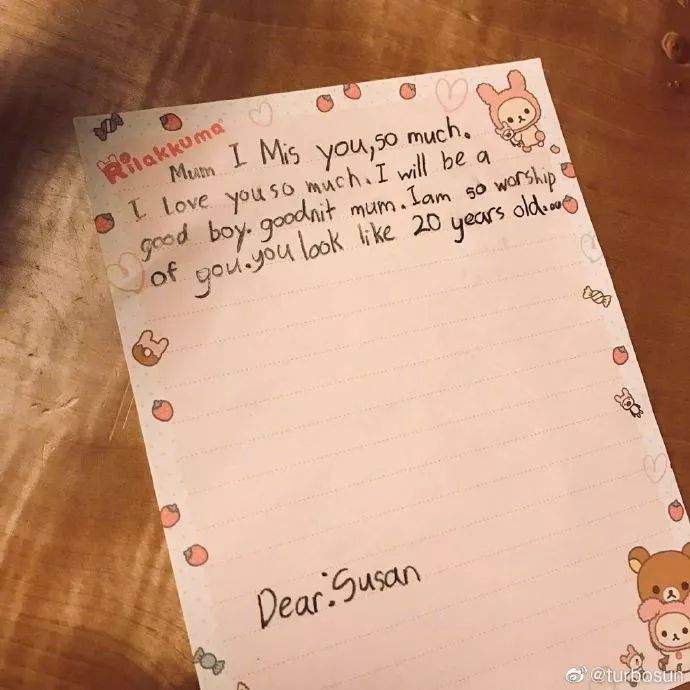 Rilakkuma
Mum I Mis you,so much.
I love you so much.I will be a
good boy. goodnit mum.Iam so worship
of you.you look like 20 years old.....
Dear:Susan
@turbosun